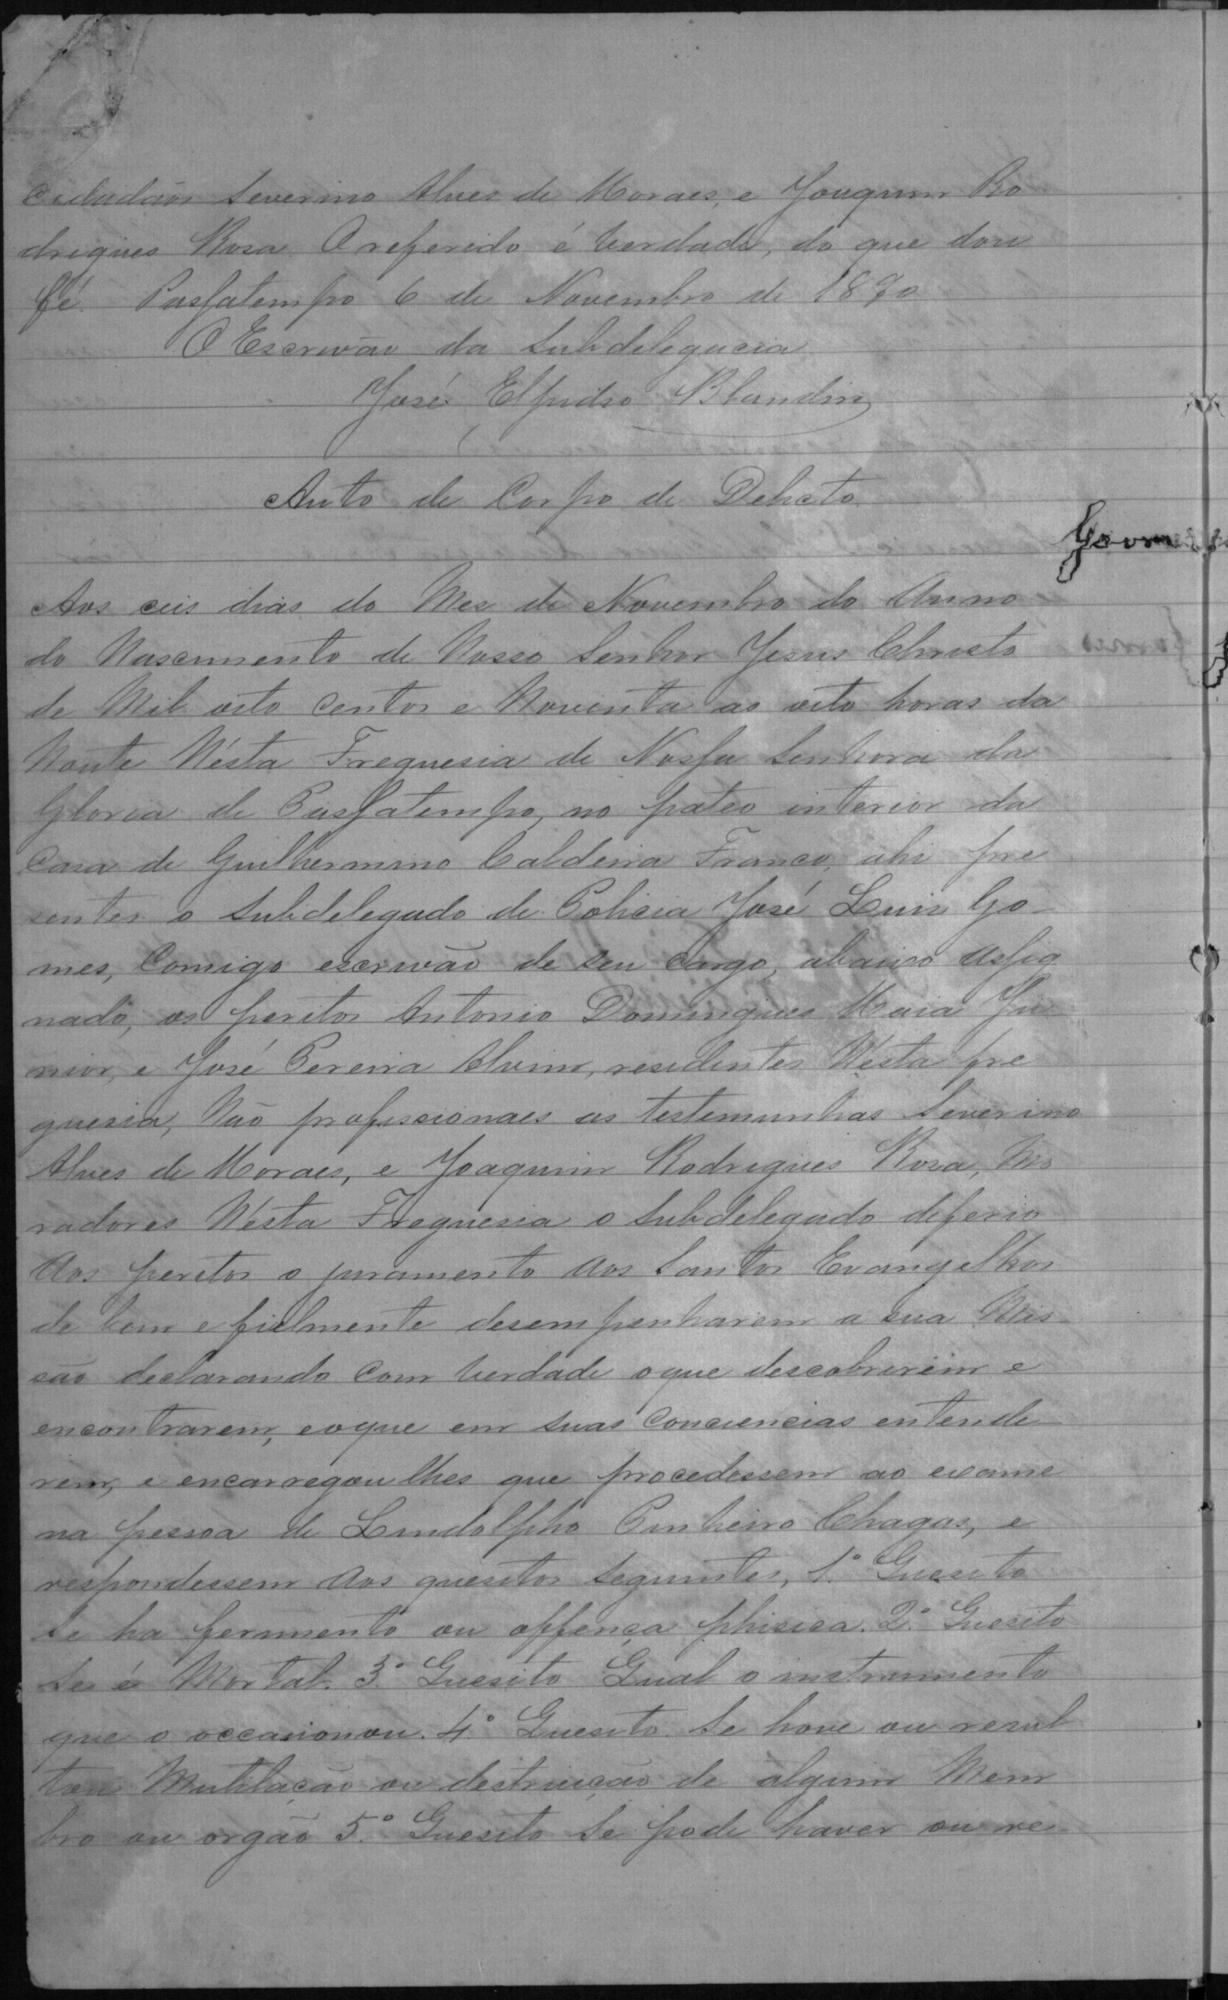 cidadãos Severino Alves de Moraes, e Joaquim Ro
drigues Rosa O referido é verdade, do que dou
fé. Passatempo 6 de Novembro de 1890
O Escrivão da Subdelegacia
José Elpidio Blandin
Auto de Corpo de Delicto
Gomes
Aos ceis dias do Mez de Novembro do Anno
do Nascimento de Nosso Senhor Jesus Christo
de Mil oito centos e Noventa as oito horas da
Noute N'ésta Freguesia de Nossa Senhora da
Gloria de Passatempo, no pateo interior da
Casa de Guilhermino Caldeira Franco, ahi pre
sentes o Subdelegado de Policia José Luis Go-
mes, Comigo escrivão de seu cargo, abaixo assig
nado, os peritos Antonio Domingues Maia Ju
nior, e José Pereira Alvim, residentes N'ésta fre
guesia, Não profissionaes as testemunhas Severino
Alves de Moraes, e Joaquim Rodrigues Rosa, Mo
radores N'ésta Freguesia o Subdelegado deferio
Aos peritos o juramento Aos Santos Evangelhos
de bem e fielmente desempenharem a sua Mis
são declarando Com verdade oque descobrirem e
encontrarem, eoque em suas Conciencias entende
rem, e encarregou lhes que procedessem ao exame
na pessoa de Lindolpho Pinheiro Chagas, e
respondessem Aos quesitos Seguintes, 1º Quesito
Se ha ferimento ou offença phisica. 2º Quesito
Se é Mortal. 3º Quesito Qual o instrumento
que o occasionou. 4º Quesito. Se houve ou resul
tou Mutilação ou destruição de algum Mem
bro ou orgão 5º Quesito Se pode haver ou re-